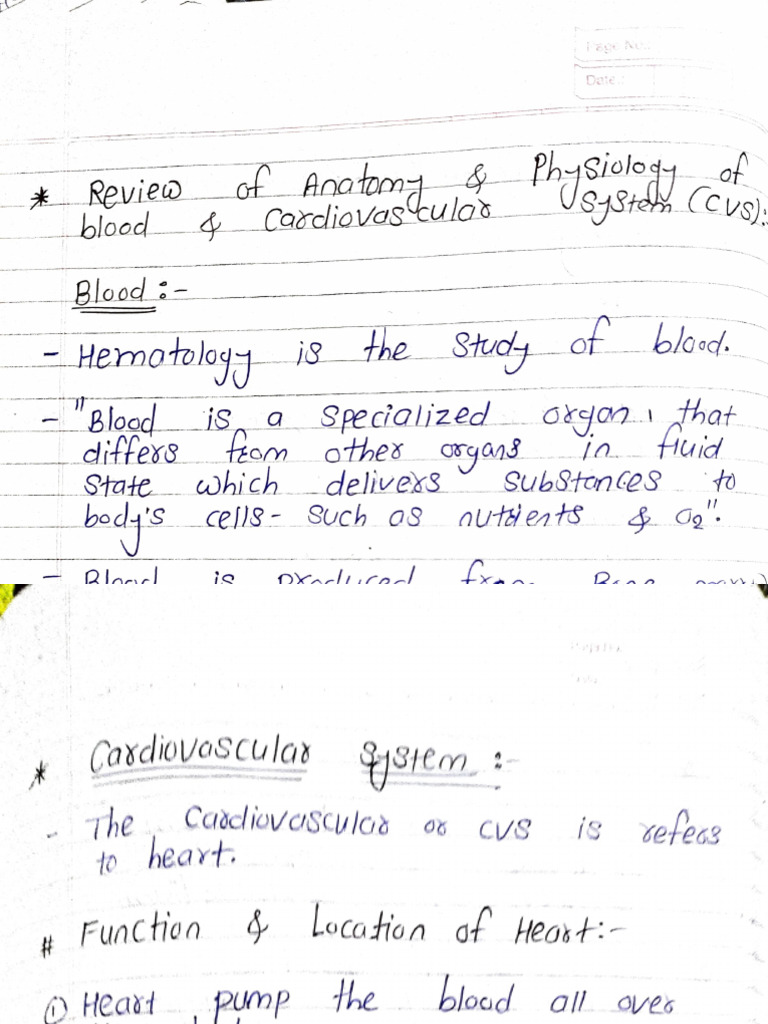 Page No.:
Date:
* Review of Anatomy & Physiology of
blood & Cardiovascular System (CVS):
Blood :-
- Hematology is the study of blood.
- "Blood is a specialized organ, that
differs from other organs in fluid
state which delivers substances to
body's cells- such as nutrients & O2".
- Blood is produced from Bone
* Cardiovascular System :-
- The Cardiovascular or CVS is refers
to heart.
# Function & Location of Heart:-
① Heart pump the blood all over